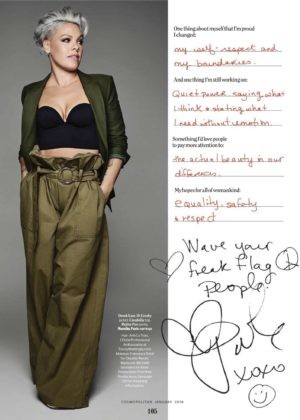 One thing about myself that I'm proud
I changed:
my self-respect and
my boundaries.
And one thing I'm still working on:
Quiet power, saying what
I think & stating what
I need without emotion.
Something I'd love people
to pay more attention to:
the actual beauty in our
differences.
My hopes for all of womankind:
equality, safety
& respect
Wave your
freak flag
People!
P!nk
xoxo
COSMOPOLITAN JANUARY 2018
105